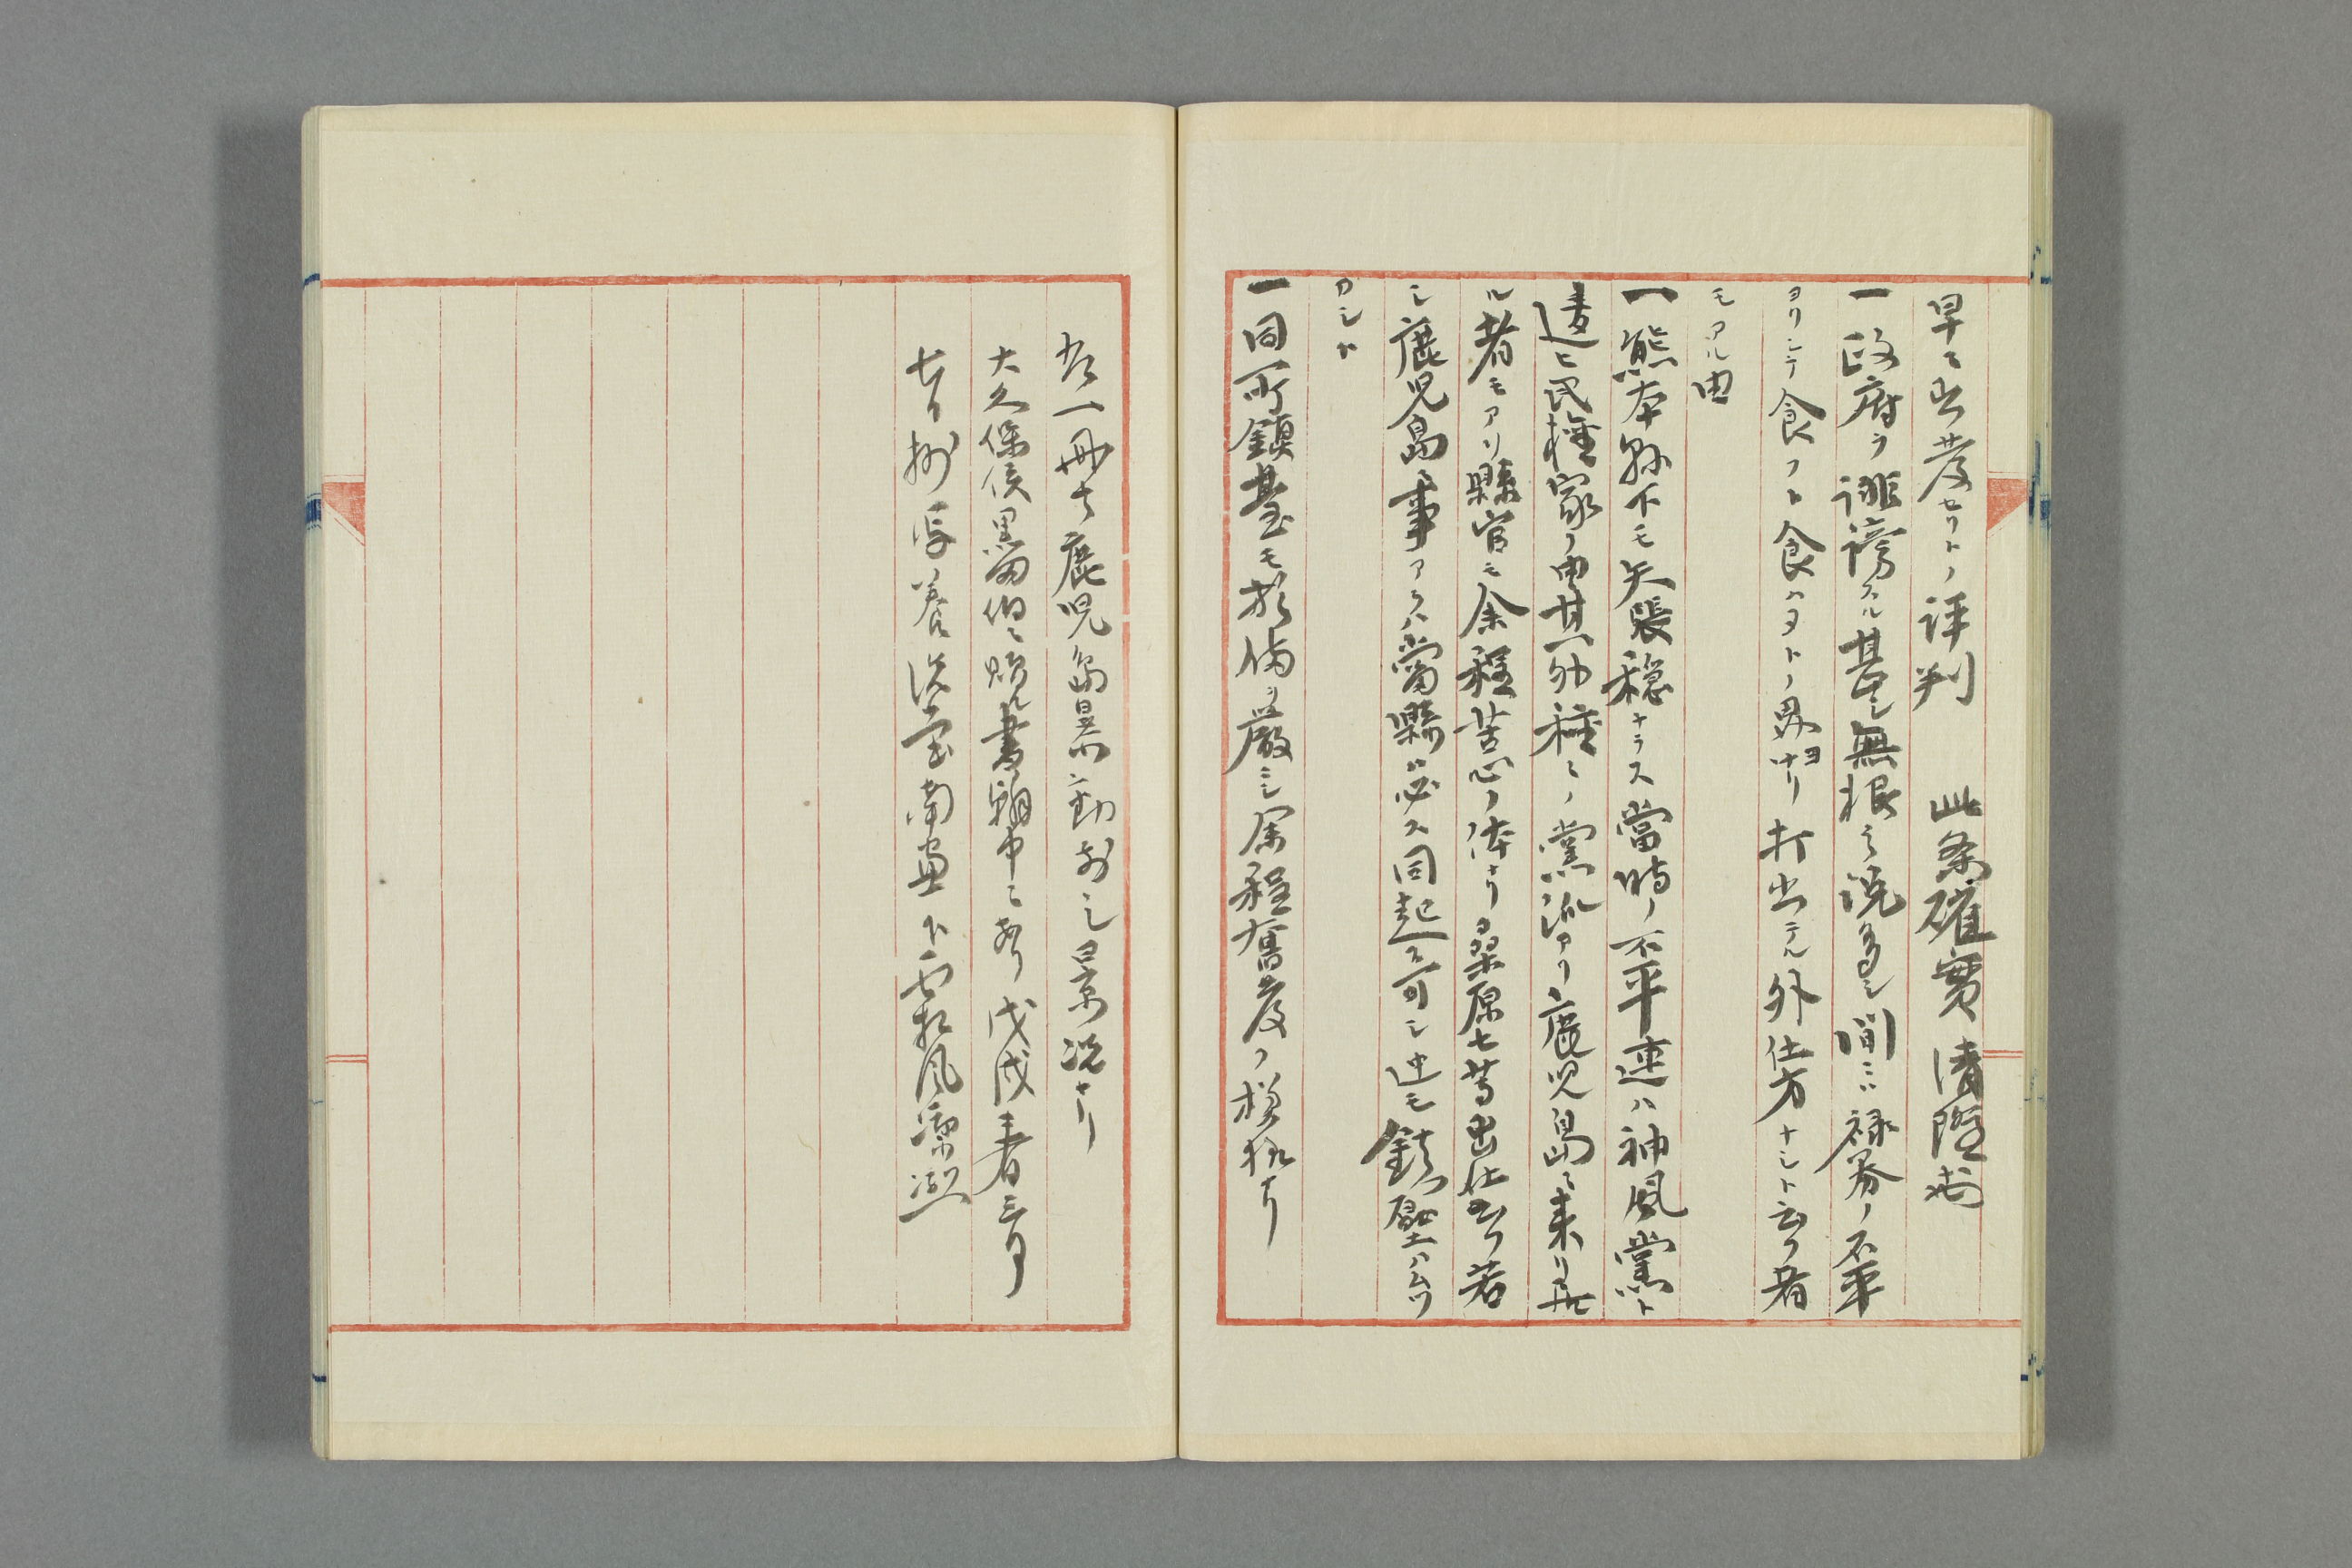 早々出発セリトノ評判　此条確実
一政府ヲ誹謗スル甚シ無根之説多シ間ニハ禄券ノ不平
ヨリシテ食フト食ハヌトノ界ナリ打出テル外仕方ナシト云フ者
モアル由
一熊本縣下モ矢張穏ナラス當時ノ不平連ハ神風黨ト
違ヒ民権家ノ由其外種々ノ黨派アリ鹿児島ニ来リ居
ル者モアリ縣官モ余程苦心ノ体ナリ桑原七等出仕云フ若
シ鹿児島事アラハ當縣ハ必ス同起ス可シ迚モ鉄壁ハムツ
カシト
一同所鎮臺モ兵備ヲ厳ニシ余程奮発ノ様子ナリ
右一冊ハ鹿児島暴動前之景况ナリ
大久保侯黒田伯ニ贈ル書翰中ニ有リ戊戌春三月
七日抄写